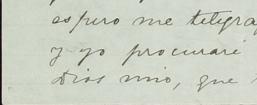 espero me telegra
y yo procuraré
Dios mio, que